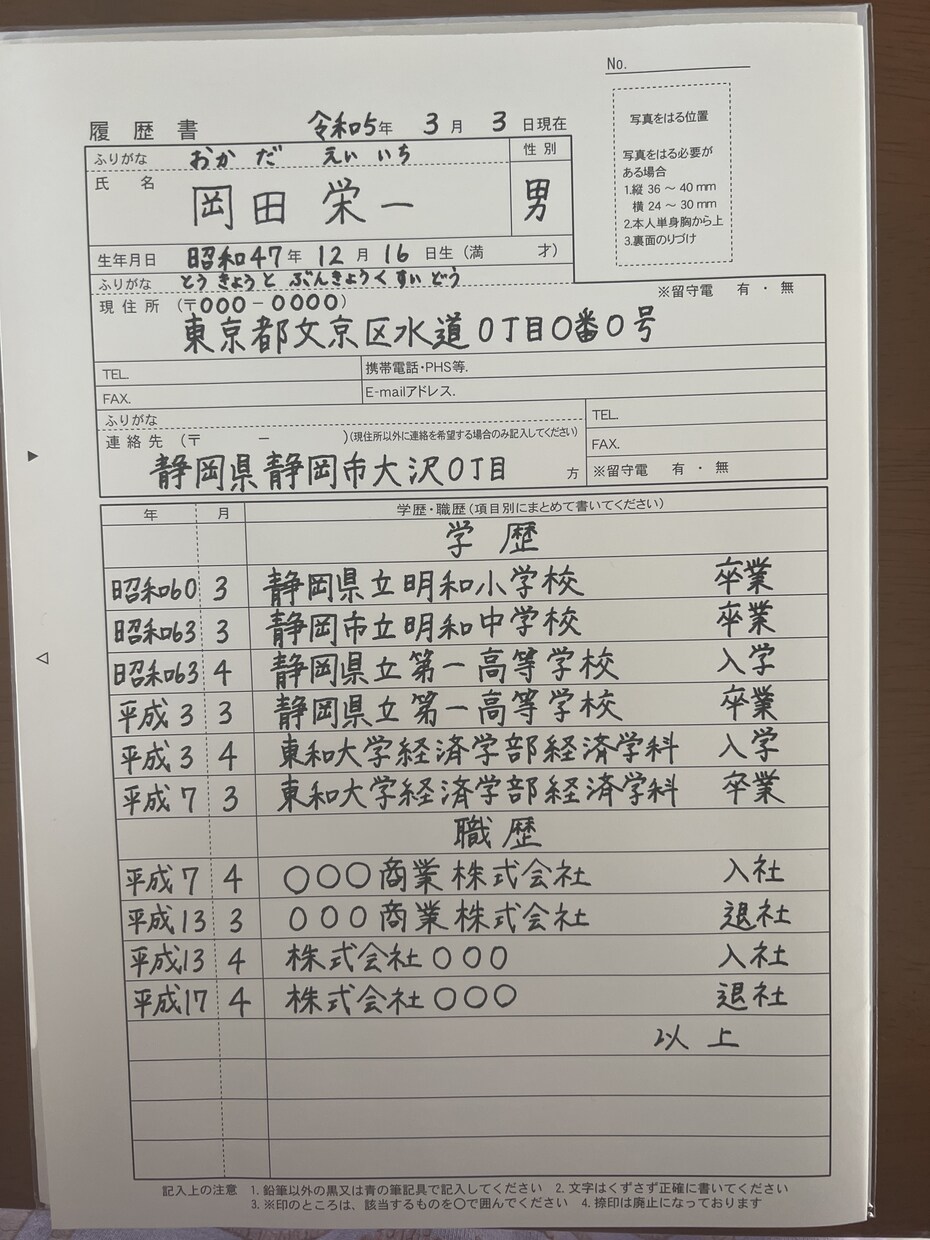 No.
履歴書 令和5年 3月 3日現在
写真をはる位置
写真をはる必要が
ある場合
1.縦 36 ～ 40 mm
横 24 ～ 30 mm
2.本人単身胸から上
3.裏面のりづけ
ふりがな おかだ えいいち 性別
氏名 岡田 栄一 男
生年月日 昭和47年 12月 16日生 (満 才)
ふりがな とうきょうと ぶんきょうく すいどう
現住所 (〒000－0000) ※留守電 有・無
東京都文京区水道0丁目0番0号
TEL. 携帯電話・PHS等.
FAX. E-mailアドレス.
ふりがな TEL.
連絡先 (〒 － )(現住所以外に連絡を希望する場合のみ記入してください) FAX.
静岡県静岡市大沢0丁目 方 ※留守電 有・無
年 月 学歴・職歴(項目別にまとめて書いてください)
学歴
昭和60 3 静岡県立明和小学校 卒業
昭和63 3 静岡市立明和中学校 卒業
昭和63 4 静岡県立第一高等学校 入学
平成3 3 静岡県立第一高等学校 卒業
平成3 4 東和大学経済学部経済学科 入学
平成7 3 東和大学経済学部経済学科 卒業
職歴
平成7 4 ○○○商業株式会社 入社
平成13 3 ○○○商業株式会社 退社
平成13 4 株式会社○○○ 入社
平成17 4 株式会社○○○ 退社
以上
記入上の注意 1.鉛筆以外の黒又は青の筆記具で記入してください 2.文字はくずさず正確に書いてください
3.※印のところは、該当するものを○で囲んでください 4.捺印は廃止になっております